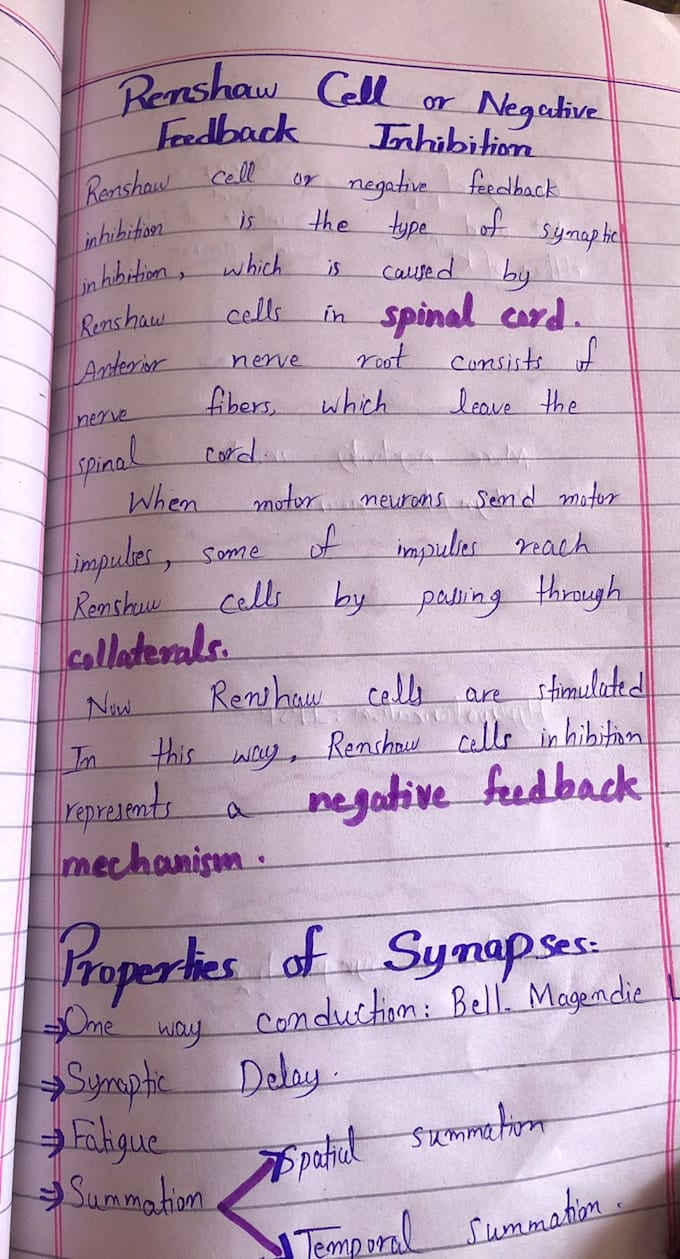 Renshaw Cell or Negative
Feedback Inhibition
Renshaw cell or negative feedback
inhibition is the type of synaptic
inhibition, which is caused by
Renshaw cells in spinal cord.
Anterior nerve root consists of
nerve fibers, which leave the
spinal cord.
When motor neurons send motor
impulses, some of impulses reach
Renshaw cells by passing through
collaterals.
Now Renshaw cells are stimulated
In this way, Renshaw cells inhibition
represents a negative feedback
mechanism.
Properties of Synapses:-
⇒One way conduction: Bell-Magendie
⇒Synaptic Delay.
⇒Fatigue
⇒Summation
Spatial summation
Temporal summation.